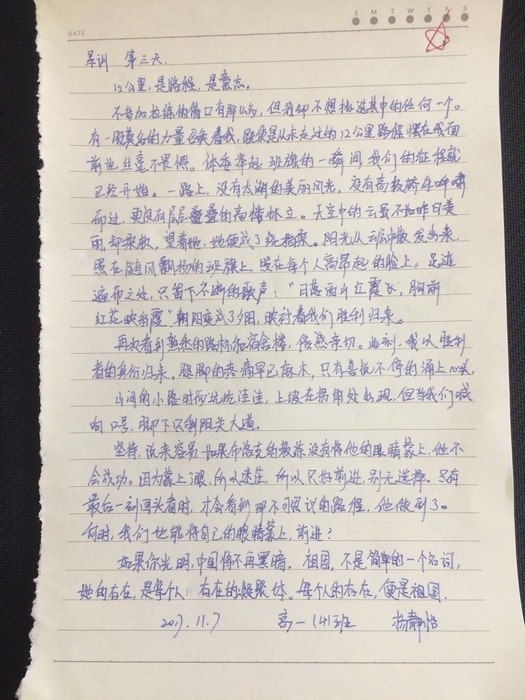 DATE
S M T W T F S
军训 第三天.
12公里,是路程,是意志。
不参加拉练的借口有那么多,但我却不想找选其中的任何一个。
有一股莫名的力量召唤着我,既使是从未走过的12公里路程摆在我面
前也丝毫不畏惧。体委举起班旗的一瞬间,我们的征程就
已经开始。一路上,没有太湖的美丽风光,没有高铁轿车呼啸
而过,更没有层层叠叠的高楼林立。天空中的云虽不如昨日美
丽却柔软,望着她,她便成了
阳光从云层中散发出来,
照在随风飘扬的班旗上,照在每个人高昂起的脸上。足迹
遍布之处,只留下不断的歌声:“日落西山红霞飞,胸前
红花映彩霞”朝阳变成了夕阳,映衬着我们胜利归来。
再次看到熟悉的路标和宿舍楼,倍感亲切。此刻,我以胜利
者的身份归来,腿脚的疼痛早已麻木,只有喜悦不停的涌上心头。
山间的小路时而坑坑洼洼,上坡在拐角处出现,但当我们喊
响口号,脚下只剩阳关大道。
坚持,说来容易。如果布洛克的教练没有将他的眼睛蒙上,他不
会成功。因为蒙上了眼,所以迷茫,所以只好前进,别无选择。只有
最后一刻回头看时,才会看到那不可思议的路程,他做到了。
何时,我们也能将自己的眼睛蒙上,前进?
如果你光明,中国将不再黑暗。祖国,不是简单的一个名词,
她的存在,是每个人存在的凝聚体。每个人的存在,便是祖国.
2017.11.7 高一(4)班 杨静怡